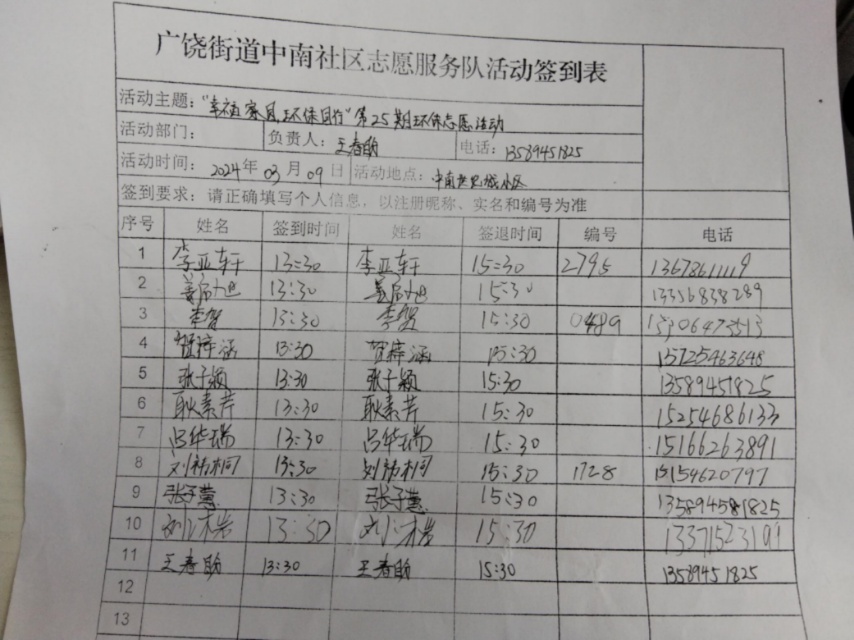 广饶街道中南社区志愿服务队活动签到表
活动主题："幸福家园,环保同行"第25期环保志愿活动
活动部门： 负责人：王春晗 电话：13589451825
活动时间：2024年03月09日 活动地点：中南世纪城小区
签到要求：请正确填写个人信息，以注册昵称、实名和编号为准
序号 姓名 签到时间 姓名 签退时间 编号 电话
1 李亚轩 13:30 李亚轩 15:30 2795 13678611119
2 13:30 15:30 13356838289
3 李贺 15:30 李贺 15:30 0489
4 贺梓涵 13:30 贺梓涵 15:30 15725463648
5 张子颖 13:30 张子颖 15:30 13589451825
6 耿素芹 13:30 耿素芹 15:30 15254686133
7 吕华瑞 13:30 吕华瑞 15:30 15166263891
8 刘祐桐 13:30 刘祐桐 15:30 1728 15154620797
9 张子慧 13:30 张子慧 15:30 135894581825
10 13:30 15:30
11 王春晗 13:30 王春晗 15:30 13589451825
12
13